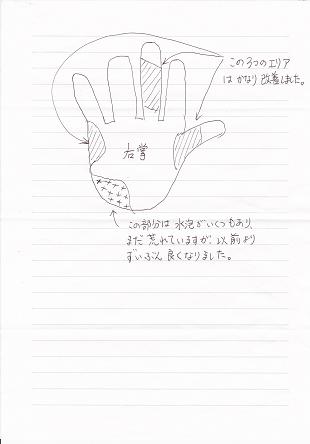 この3つのエリア
はかなり改善しました。
右掌
この部分は水泡がいくつもあり、
まだ荒れていますが、以前より
ずいぶん良くなりました。